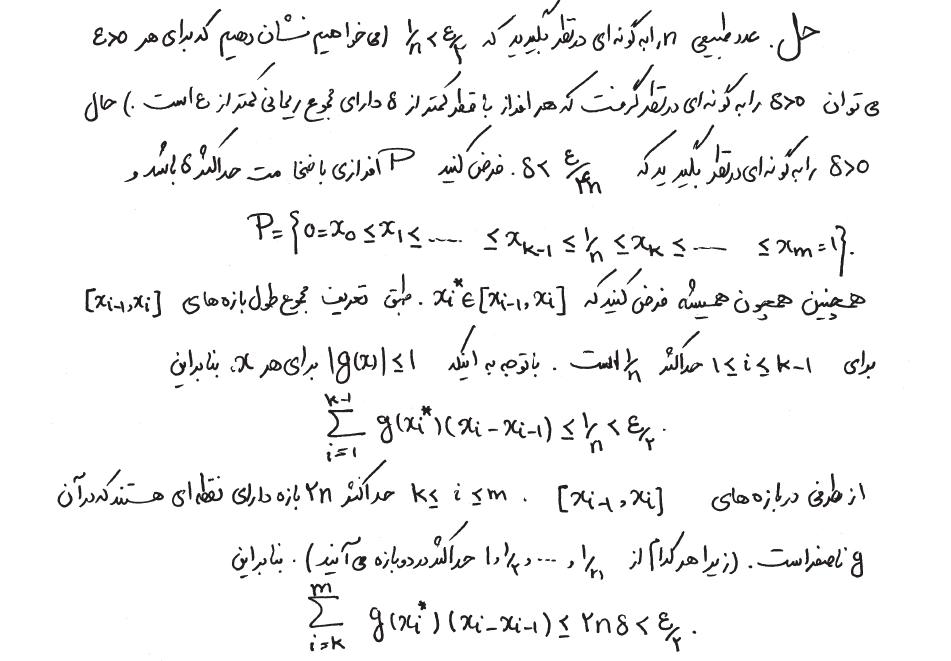 حل. عدد طبیعی n را به گونه ای در نظر بگیرید که 1/n < ε/۲ (می خواهیم نشان دهیم که برای هر ε>0
می توان δ>0 را به گونه ای در نظر گرفت که هر افراز با قطر کمتر از δ دارای مجموع ریمانی کمتر از ε است.) حال
δ>0 را به گونه ای در نظر بگیرید که δ < ε/۴n. فرض کنید P افرازی با ضخامت حداکثر δ باشد و
P = {0=x₀ ≤ x₁ ≤ ..... ≤ x_{k-1} ≤ 1/n ≤ x_k ≤ ..... ≤ x_m = 1}.
همچنین همچون همیشه فرض کنید که x_i* ∈ [x_{i-1}, x_i]. طبق تعریف مجموع طول بازه های [x_{i-1}, x_i]
برای 1 ≤ i ≤ k-1 حداکثر 1/n است. با توجه به اینکه |g(x)| ≤ 1 برای هر x. بنابراین
∑_{i=1}^{k-1} g(x_i*)(x_i - x_{i-1}) ≤ 1/n < ε/۲.
از طرفی در بازه های [x_{i-1}, x_i]. k ≤ i ≤ m حداکثر ۲n بازه دارای نقطه ای هستند که در آن
g ناصفر است. (زیرا هر کدام از 1/n, ..., 1/۲, 1 حداکثر در دو بازه می آیند). بنابراین
∑_{i=k}^{m} g(x_i*)(x_i - x_{i-1}) ≤ ۲nδ < ε/۲.